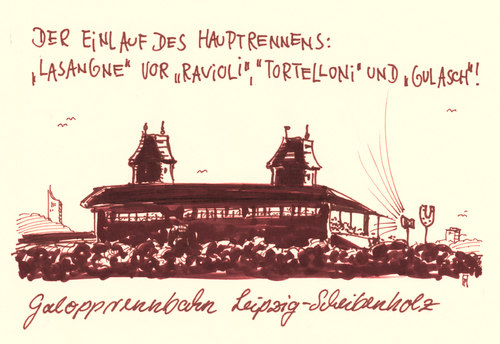 DER EINLAUF DES HAUPTRENNENS:
„LASANGNE" VOR „RAVIOLI", "TORTELLONI" UND „GULASCH"!
Galopprennbahn Leipzig-Scheibenholz